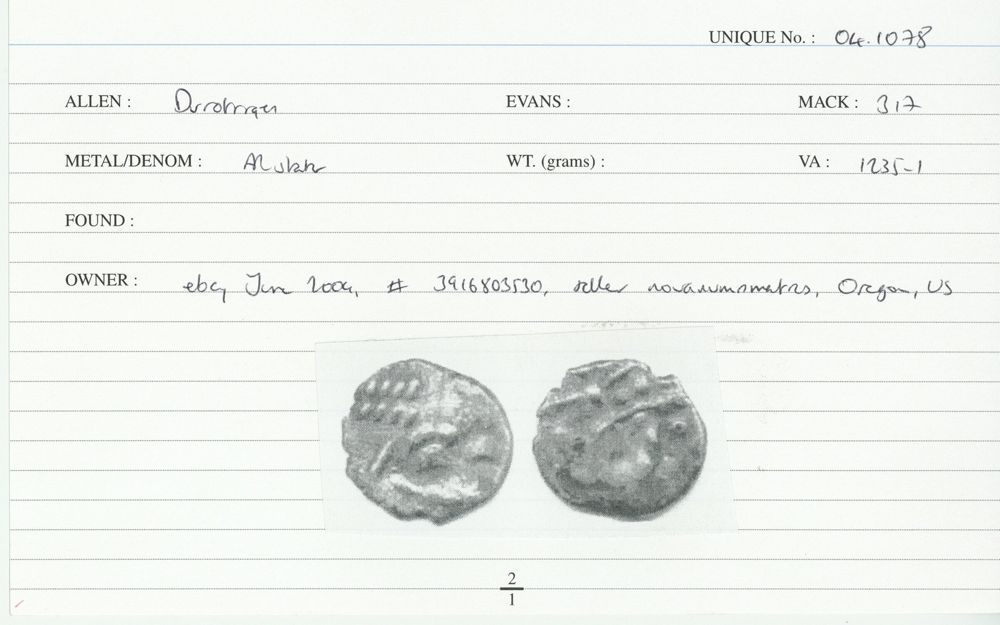 UNIQUE No. : 04.1078
ALLEN : Durotrigan EVANS : MACK : 317
METAL/DENOM : AR stater WT. (grams) : VA : 1235-1
FOUND :
OWNER : ebay June 2004, # 3916803530, seller novanumismatics, Oregon, US
2
1